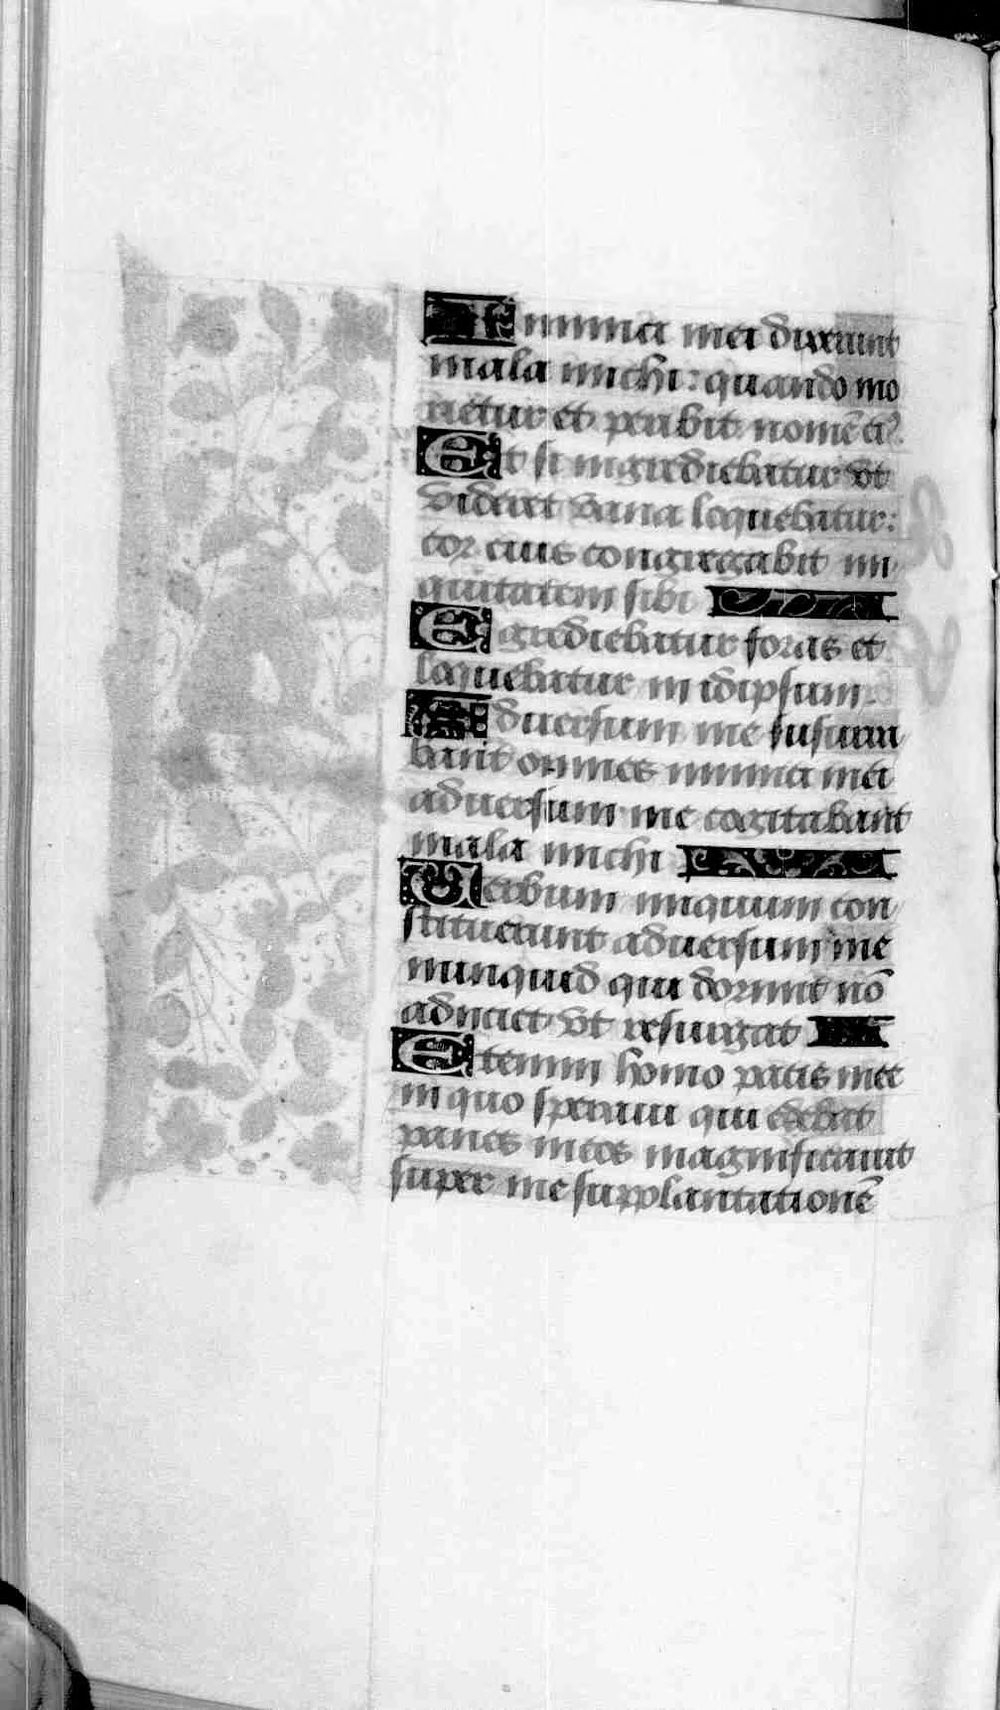 Inimici mei dixerunt
mala michi: quando mo
rietur et peribit nomē ei⁹.
Et si ingrediebatur vt
videret vana loquebatur:
cor eius congregabit ini
quitatem sibi
Egrediebatur foras et
loquebatur in idipsum.
Aduersum me susurra
bant omnes inimici mei
aduersum me cogitabant
mala michi
Verbum iniquum con
stituerunt aduersum me
nunquid qui dormit nō
adiiciet vt resurgat
Etenim homo pacis mee
in quo speraui qui edebat
panes meos magnificauit
super me supplantationē